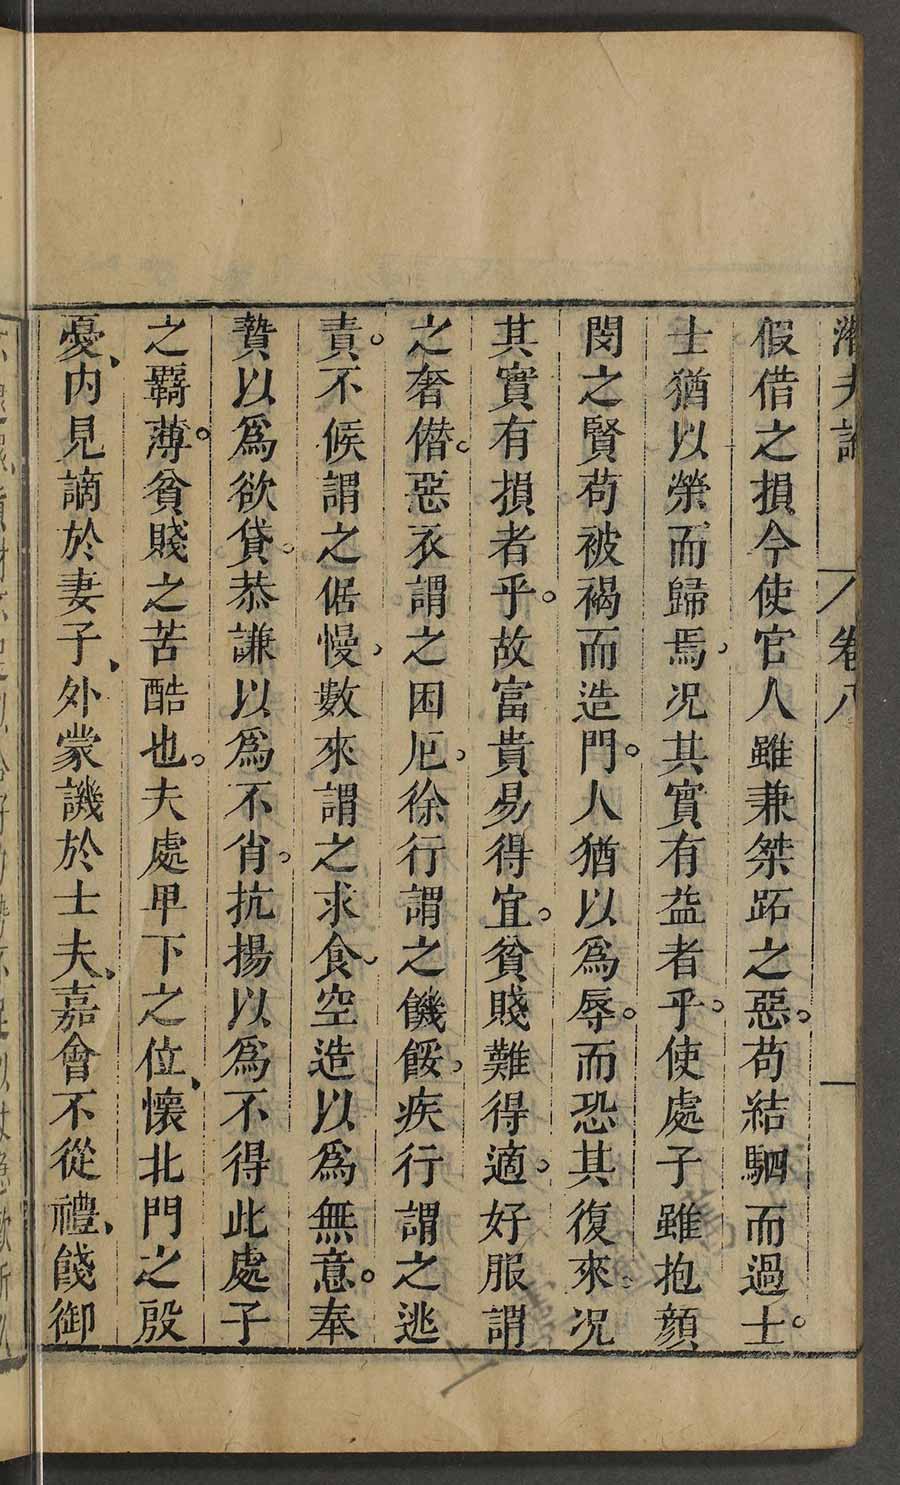 潛夫論 卷八
假借之損今使官人雖兼桀跖之惡。苟結駟而過士。
士猶以榮而歸焉、况其實有益者乎。使處子雖抱顏
閔之賢苟被褐而造門。人猶以爲辱。而恐其復來。况
其實有損者乎。故富貴易得宜。貧賤難得適。好服謂
之奢僭。惡衣謂之困厄。徐行謂之饑餒。疾行謂之逃
責。不候謂之倨慢、數來謂之求食、空造以爲無意。奉
贄以爲欲貸。恭謙以爲不肖。抗揚以爲不得此處子
之羇薄。貧賤之苦酷也。夫處卑下之位、懷北門之殷
憂、内見謫於妻子、外蒙譏於士夫、嘉會不從禮、餞御